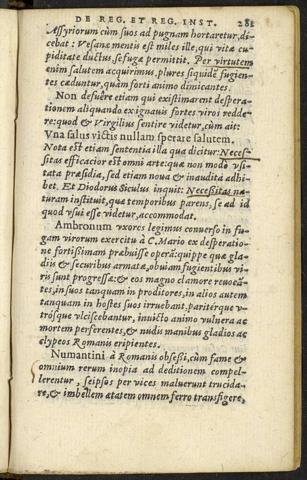 DE REG. ET REG. INST. 281
Assyriorum cùm suos ad pugnam hortaretur, di-
cebat: Vesanæ mentis est miles ille, qui vitæ cu-
piditate ductus se fuga permittit. Per virtutem
enim salutem acquirimus, plures siquidē fugien-
tes cæduntur, quàm forti animo dimicantes.
Non defuêre etiam qui existimarent despera-
tionem aliquando ex ignauis fortes viros redde-
re: quod & Virgilius sentire videtur, cùm ait:
Vna salus victis nullam sperare salutem.
Nota est etiam sententia illa qua dicitur: Neces-
sitas efficacior est omni arte: quæ non modò vsi-
tata præsidia, sed etiam noua & inaudita adhi-
bet. Et Diodorus Siculus inquit: Necessitas na-
turam instituit, quæ temporibus parens, se ad id
quod vsui esse videtur, accommodat.
Ambronum vxores legimus conuerso in fu-
gam virorum exercitu à C. Mario ex desperatio-
ne fortissimam præbuisse operā: quippe quæ gla-
diis & securibus armatæ, obuiam fugientibus vi-
ris sunt progressæ: & eos magno clamore reuocā-
tes, in suos tanquam in proditores, in alios autem
tanquam in hostes suos irruebant. pariterque v-
trósque vlciscebantur, inuicto animo vulnera ac
mortem perferentes, & nudis manibus gladios ac
clypeos Romanis eripientes.
Numantini à Romanis obsessi, cùm fame &
omnium rerum inopia ad deditionem compel-
lerentur, seipsos per vices maluerunt trucida-
re, & imbellem ætatem omnem ferro transfigere,